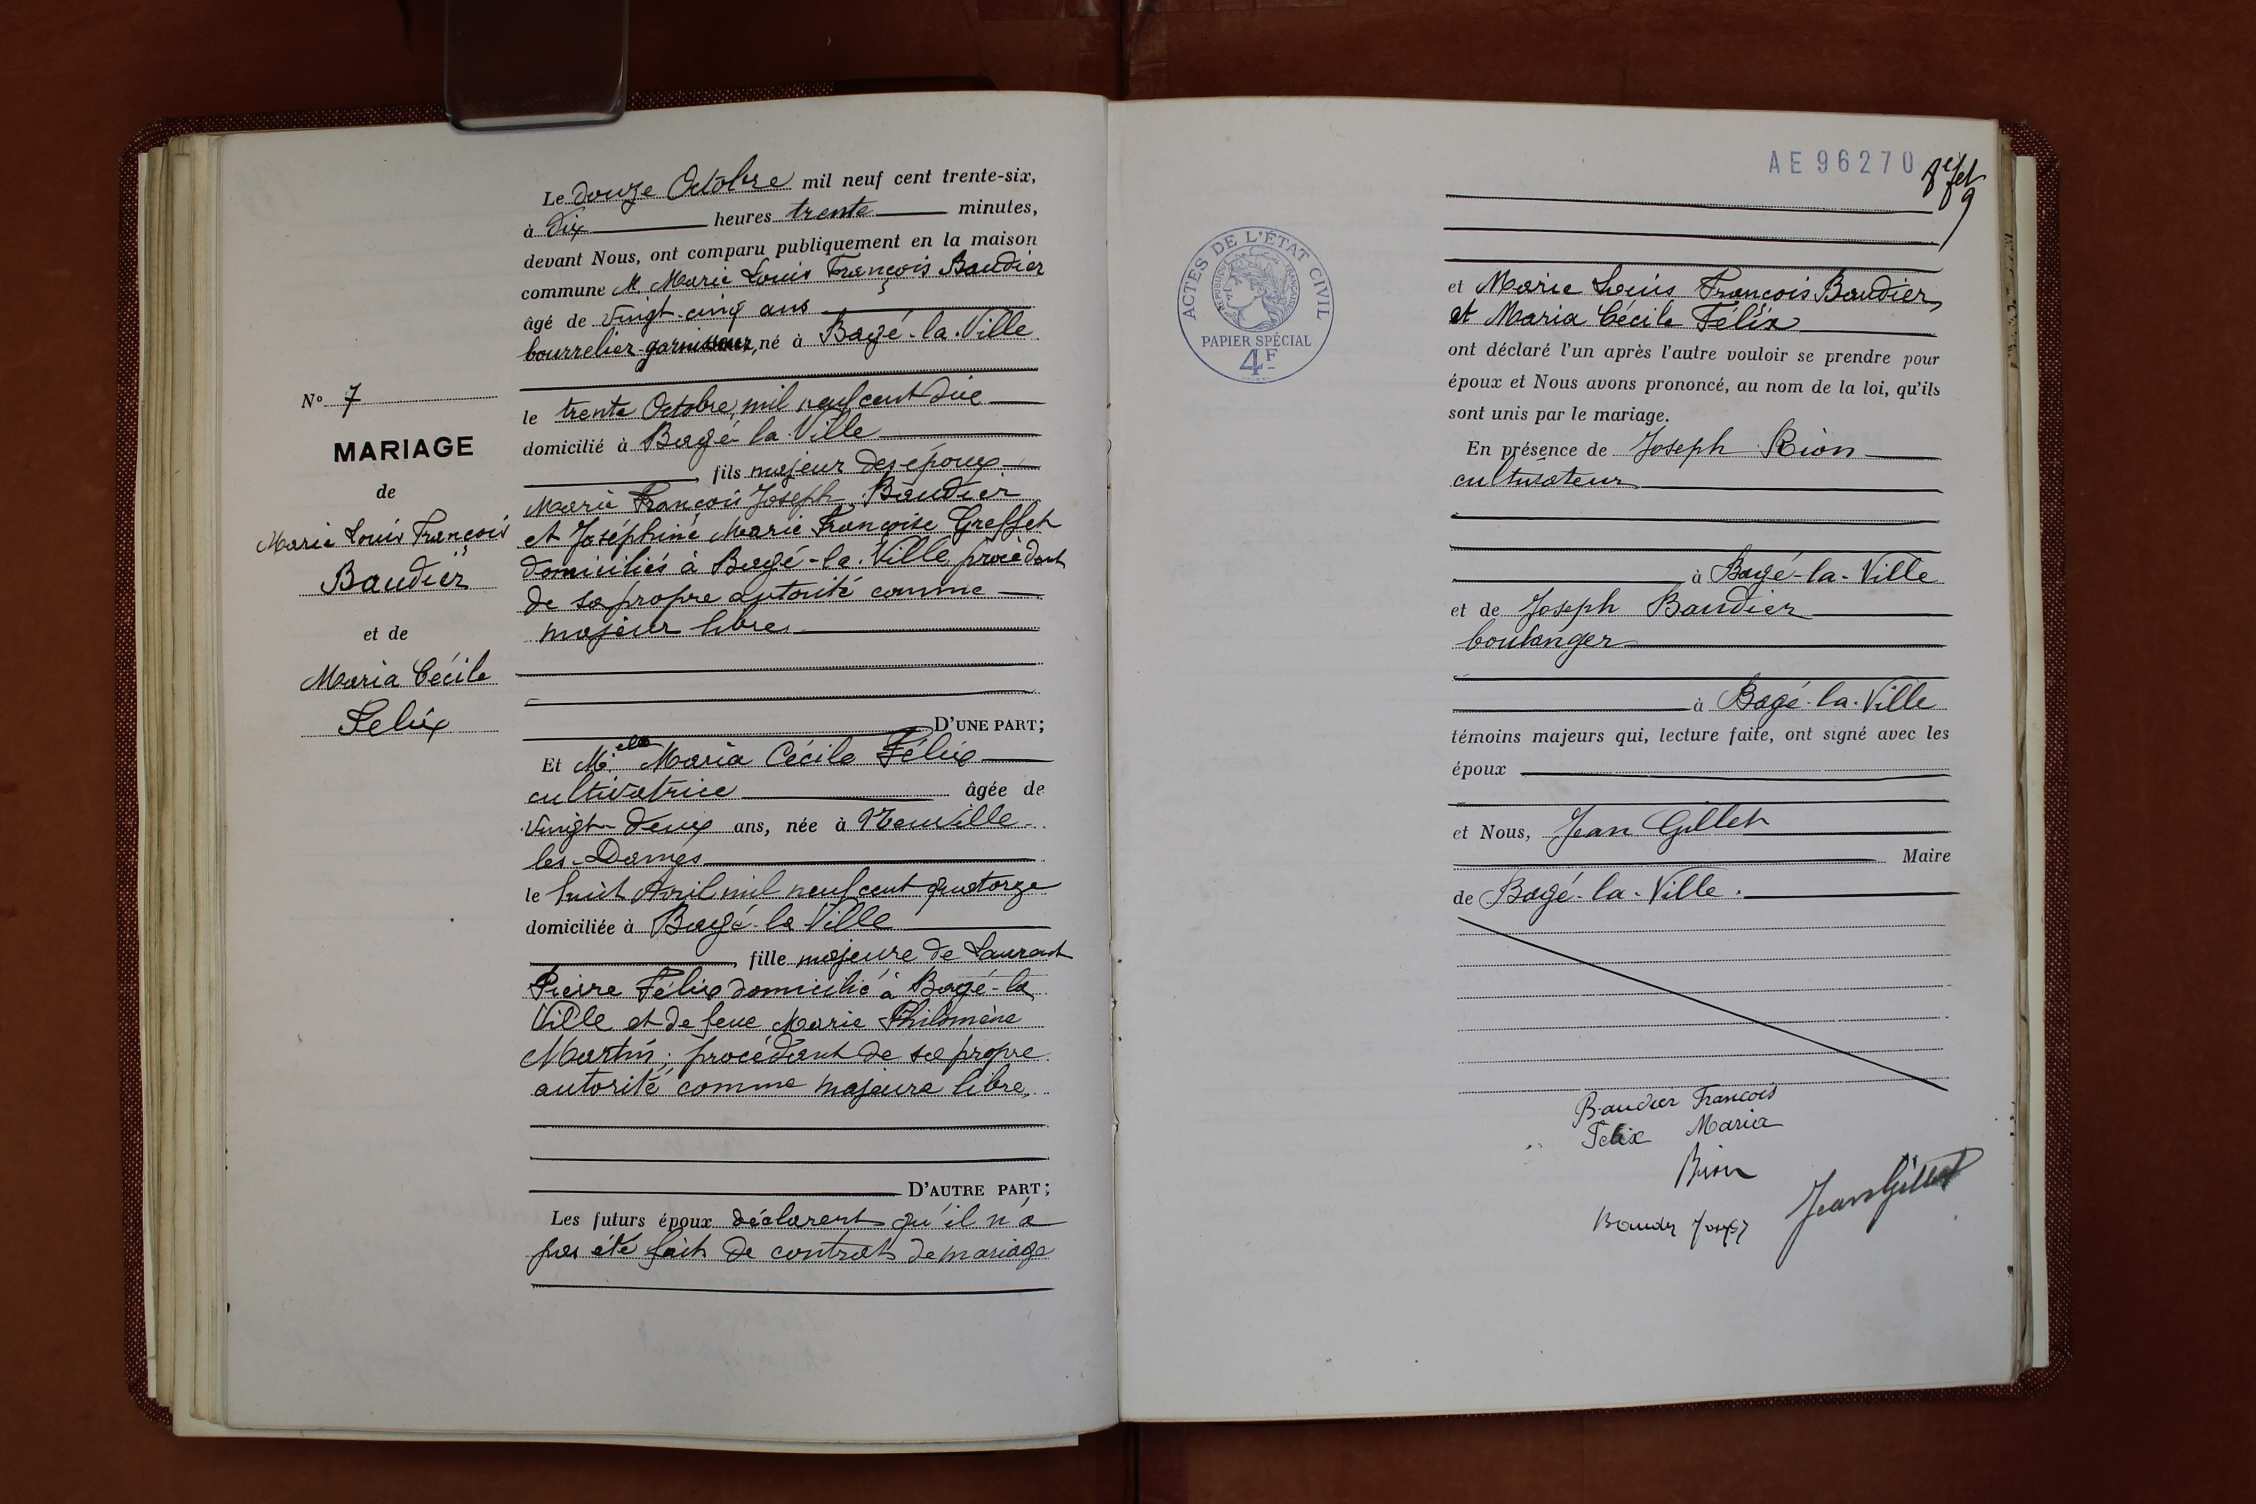 N° 7
MARIAGE
de
Marie Louis François
Baudier
et de
Maria Cécile
Felix
Le douze Octobre mil neuf cent trente-six,
à dix heures trente minutes,
devant Nous, ont comparu publiquement en la maison
commune M. Marie Louis François Baudier
âgé de vingt-cinq ans
bourrelier-garnisseur, né à Bagé-la-Ville
le trente Octobre mil neuf cent dix
domicilié à Bagé-la-Ville
, fils majeur des époux
Marie François Joseph Baudier
et Joséphine Marie Françoise Greffet
domiciliés à Bagé-la-Ville, procédant
de sa propre autorité comme
majeur libre,
D'UNE PART;
Et M.elle Maria Cécile Félix
cultivatrice âgée de
vingt-deux ans, née à Neuville-
les-Dames
le huit Avril mil neuf cent quatorze
domiciliée à Bagé-la Ville
, fille majeure de Laurent
Pierre Félix domicilié à Bagé-la
Ville et de feue Marie Philomène
Martin; procédant de sa propre
autorité comme majeure libre,
D'AUTRE PART;
Les futurs époux déclarent qu'il n'a
pas été fait de contrat de mariage
AE 96270
8e et
9
ACTES DE L'ÉTAT CIVIL
RÉPUBLIQUE FRANÇAISE
PAPIER SPÉCIAL
4F
et Marie Louis François Baudier,
et Maria Cécile Félix
ont déclaré l'un après l'autre vouloir se prendre pour
époux et Nous avons prononcé, au nom de la loi, qu'ils
sont unis par le mariage.
En présence de Joseph Rion
cultivateur
à Bagé-la-Ville
et de Joseph Baudier
boulanger
à Bagé-la-Ville
témoins majeurs qui, lecture faite, ont signé avec les
époux
et Nous, Jean Gillet
Maire
de Bagé-la-Ville.
Baudier François
Felix Maria
Jean Gillet